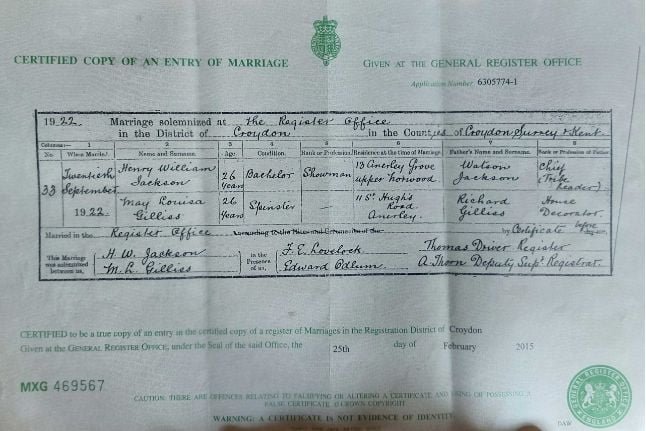 CERTIFIED COPY OF AN ENTRY OF MARRIAGE
GIVEN AT THE GENERAL REGISTER OFFICE
Application Number 6305774-1
1922. Marriage solemnized at The Register Office
in the District of Croydon in the Counties of Croydon, Surrey & Kent
Columns:— 1 2 3 4 5 6 7 8
No. When Married Name and Surname. Age Condition. Rank or Profession Residence at the time of Marriage. Father's Name and Surname. Rank or Profession of Father
33 Twentieth September 1922. Henry William Jackson 26 years Bachelor Showman 13 Anerley Grove Upper Norwood Watson Jackson Chief (Tribe Leader).
May Louisa Gilliss 26 years Spinster — 11 St Hugh's Road. Anerley. Richard Gilliss House Decorator.
Married in the Register Office according to the by Certificate before
This Marriage was solemnized between us, H. W. Jackson in the Presence of us, F. E. Lovelock Thomas Driver Register
M. L. Gilliss Edward Odlum A. Thorn Deputy Supt Registrar.
CERTIFIED to be a true copy of an entry in the certified copy of a register of Marriages in the Registration District of Croydon
Given at the GENERAL REGISTER OFFICE, under the Seal of the said Office, the 25th day of February 2015
MXG 469567
CAUTION: THERE ARE OFFENCES RELATING TO FALSIFYING OR ALTERING A CERTIFICATE AND USING OR POSSESSING A
FALSE CERTIFICATE © CROWN COPYRIGHT
WARNING: A CERTIFICATE IS NOT EVIDENCE OF IDENTITY.
GENERAL REGISTER OFFICE
ENGLAND
DAW